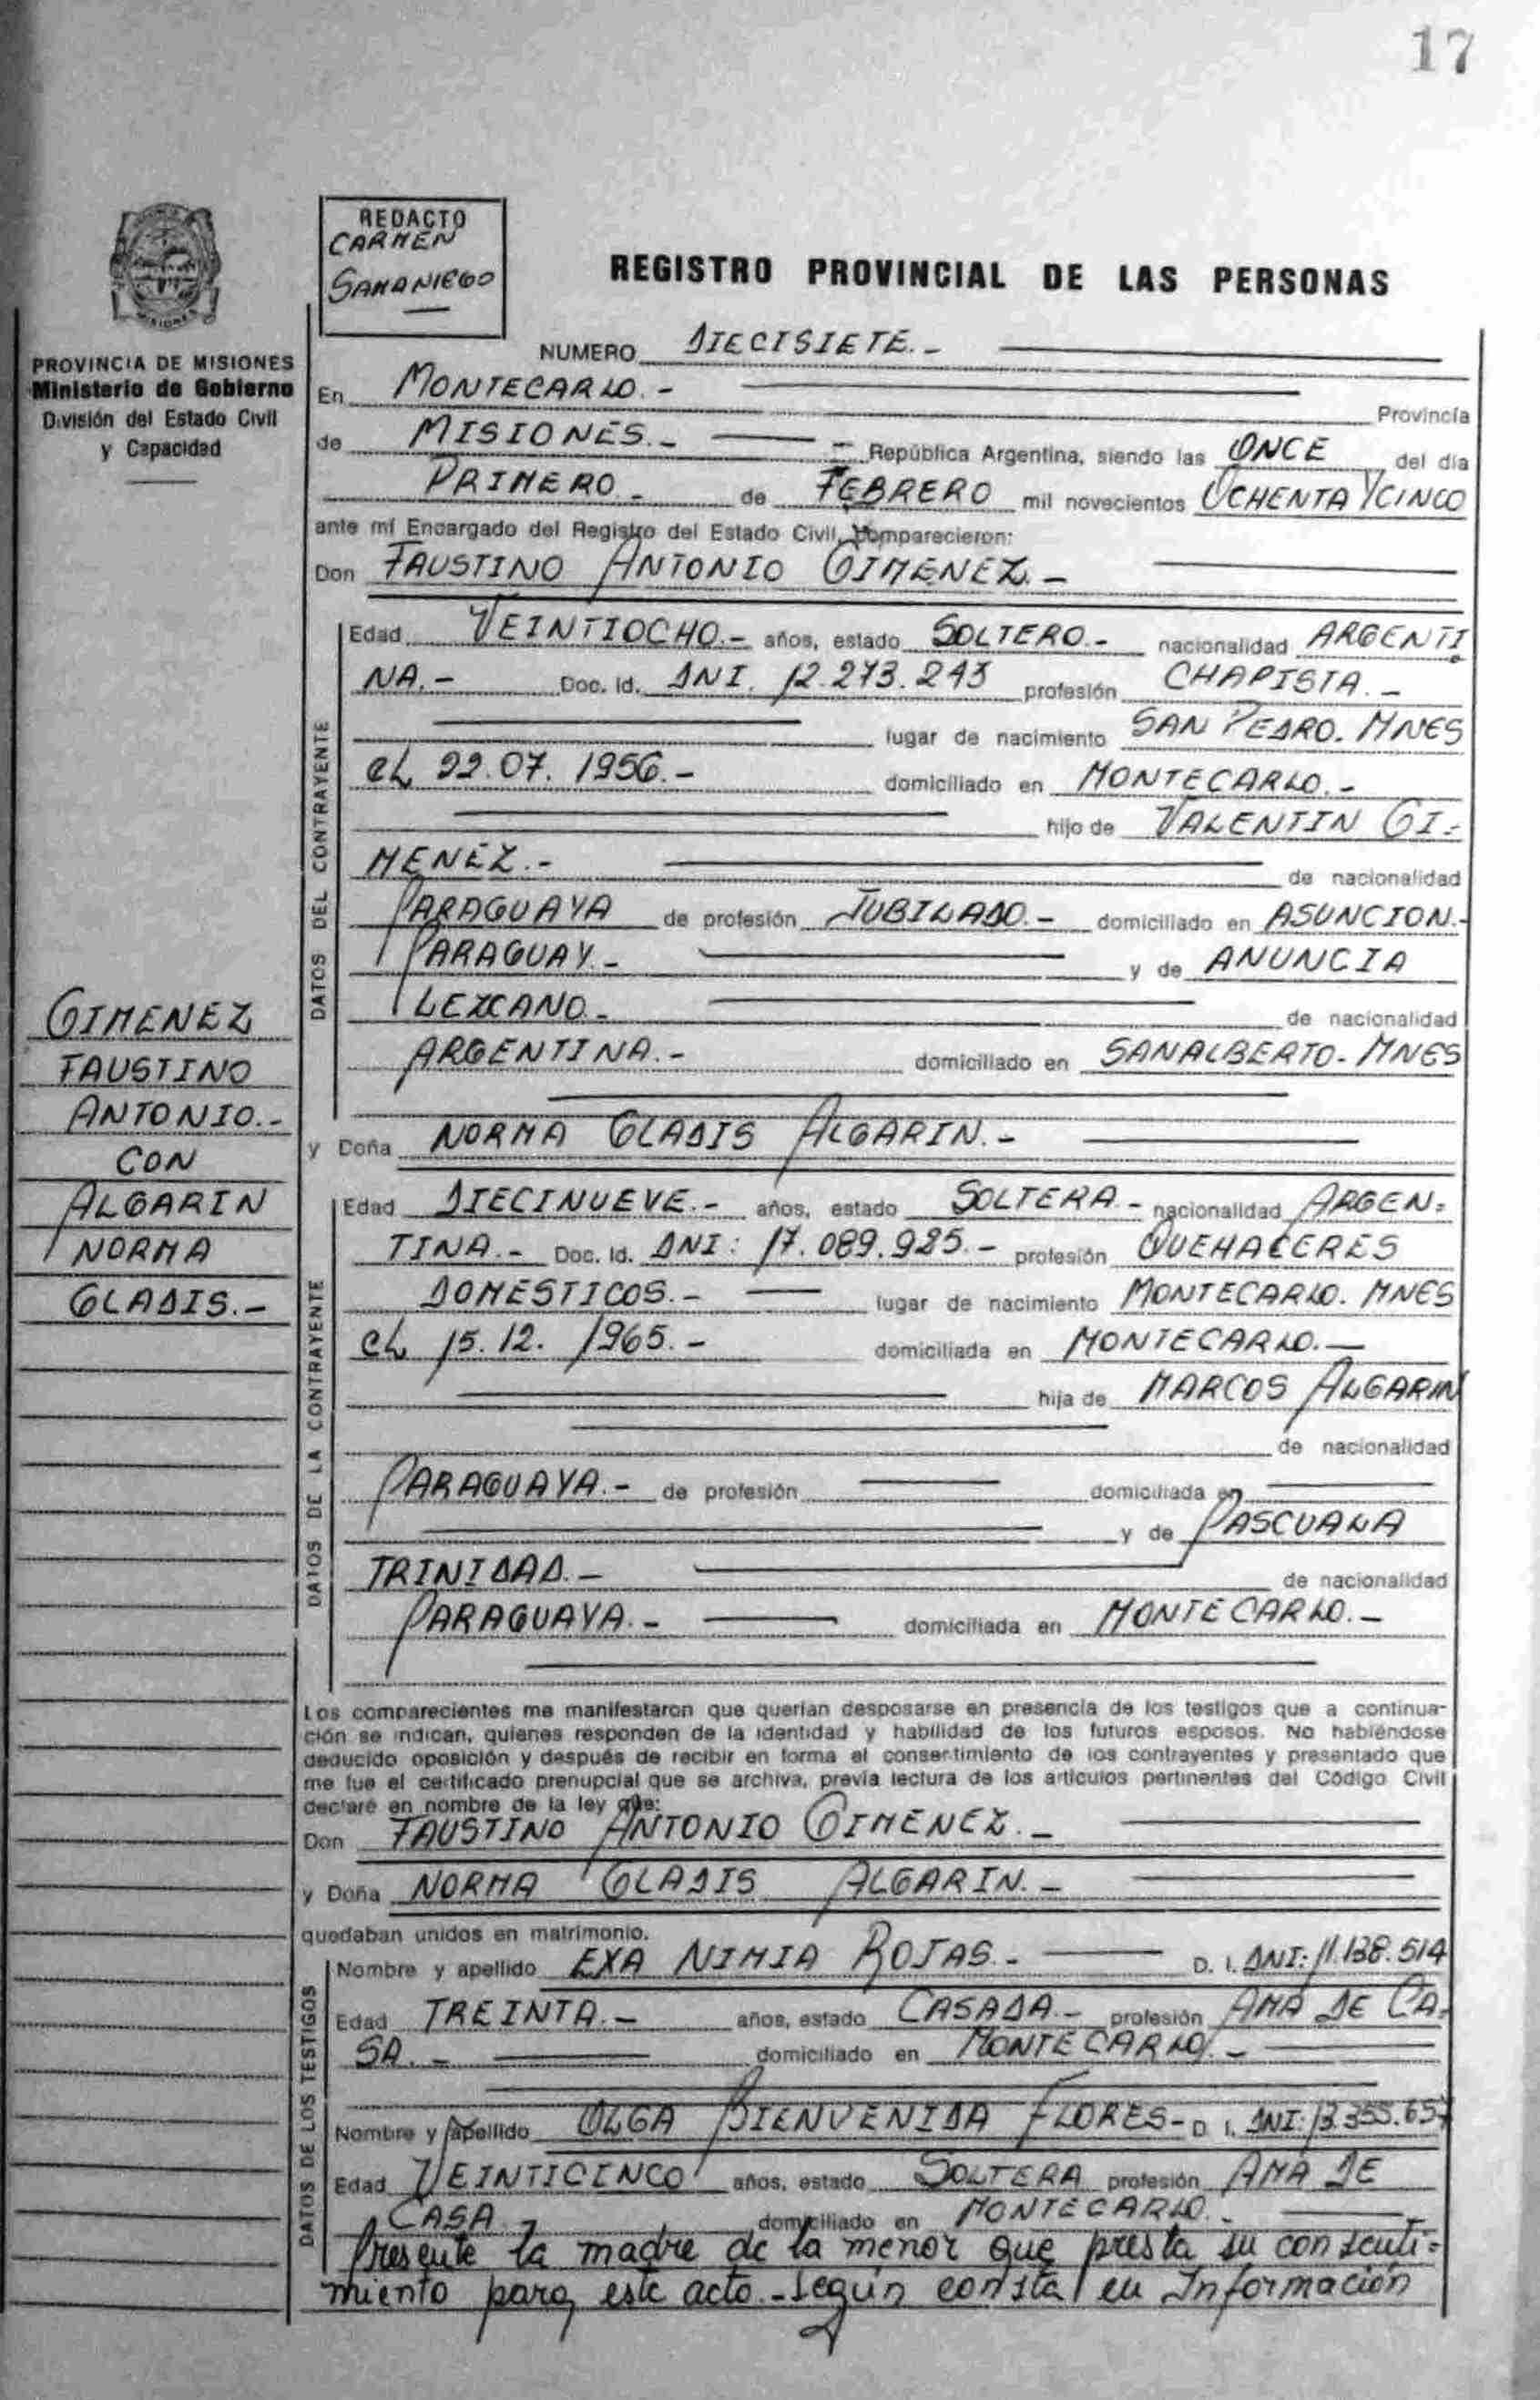 17
REDACTO
CARMEN
SAMANIEGO
REGISTRO PROVINCIAL DE LAS PERSONAS
MISIONES
PROVINCIA DE MISIONES
Ministerio de Gobierno
División del Estado Civil
y Capacidad
NUMERO DIECISIETE.-
En MONTECARLO.- Provincia
de MISIONES.- República Argentina, siendo las ONCE del día
PRIMERO- de FEBRERO mil novecientos OCHENTA Y CINCO
ante mí Encargado del Registro del Estado Civil, comparecieron:
Don FAUSTINO ANTONIO GIMENEZ.-
DATOS DEL CONTRAYENTE
Edad VEINTIOCHO.- años, estado SOLTERO.- nacionalidad ARGENTI
NA.- Doc. Id. DNI. 12.273.243 profesión CHAPISTA.-
lugar de nacimiento SAN PEDRO. MNES
el 22.07.1956.- domiciliado en MONTECARLO.-
hijo de VALENTIN GI-
MENEZ.- de nacionalidad
PARAGUAYA de profesión JUBILADO.- domiciliado en ASUNCION.-
PARAGUAY.- y de ANUNCIA
LEZCANO.- de nacionalidad
ARGENTINA.- domiciliado en SANALBERTO- MNES
y Doña NORMA GLADIS ALGARIN.-
GIMENEZ
FAUSTINO
ANTONIO.-
CON
ALGARIN
NORMA
GLADIS.-
DATOS DE LA CONTRAYENTE
Edad DIECINUEVE.- años, estado SOLTERA- nacionalidad ARGEN=
TINA.- Doc. Id. DNI: 17.089.925.- profesión QUEHACERES
DOMESTICOS.- lugar de nacimiento MONTECARLO. MNES
el 15.12.1965.- domiciliada en MONTECARLO.-
hija de MARCOS ALGARIN
de nacionalidad
PARAGUAYA.- de profesión domiciliada en
y de PASCUALA
TRINIDAD.- de nacionalidad
PARAGUAYA.- domiciliada en MONTECARLO.-
Los comparecientes me manifestaron que querían desposarse en presencia de los testigos que a continua-
ción se indican, quienes responden de la identidad y habilidad de los futuros esposos. No habiéndose
deducido oposición y después de recibir en forma el consertimiento de los contrayentes y presentado que
me fue el certificado prenupcial que se archiva, previa lectura de los artículos pertinentes del Código Civil
declaré en nombre de la ley que:
Don FAUSTINO ANTONIO GIMENEZ.-
y Doña NORMA GLADIS ALGARIN.-
quedaban unidos en matrimonio.
DATOS DE LOS TESTIGOS
Nombre y apellido EXA NIMIA ROJAS.- D. I. DNI: 11.138.514
Edad TREINTA.- años, estado CASADA.- profesión AMA DE CA=
SA.- domiciliado en MONTECARLO.-
Nombre y apellido OLGA BIENVENIDA FLORES- D. I. DNI: 13.355.657
Edad VEINTICINCO años, estado SOLTERA profesión AMA DE
CASA.- domiciliado en MONTECARLO.-
Presente la madre de la menor que presta su consenti=
miento para este acto.- según consta en Información